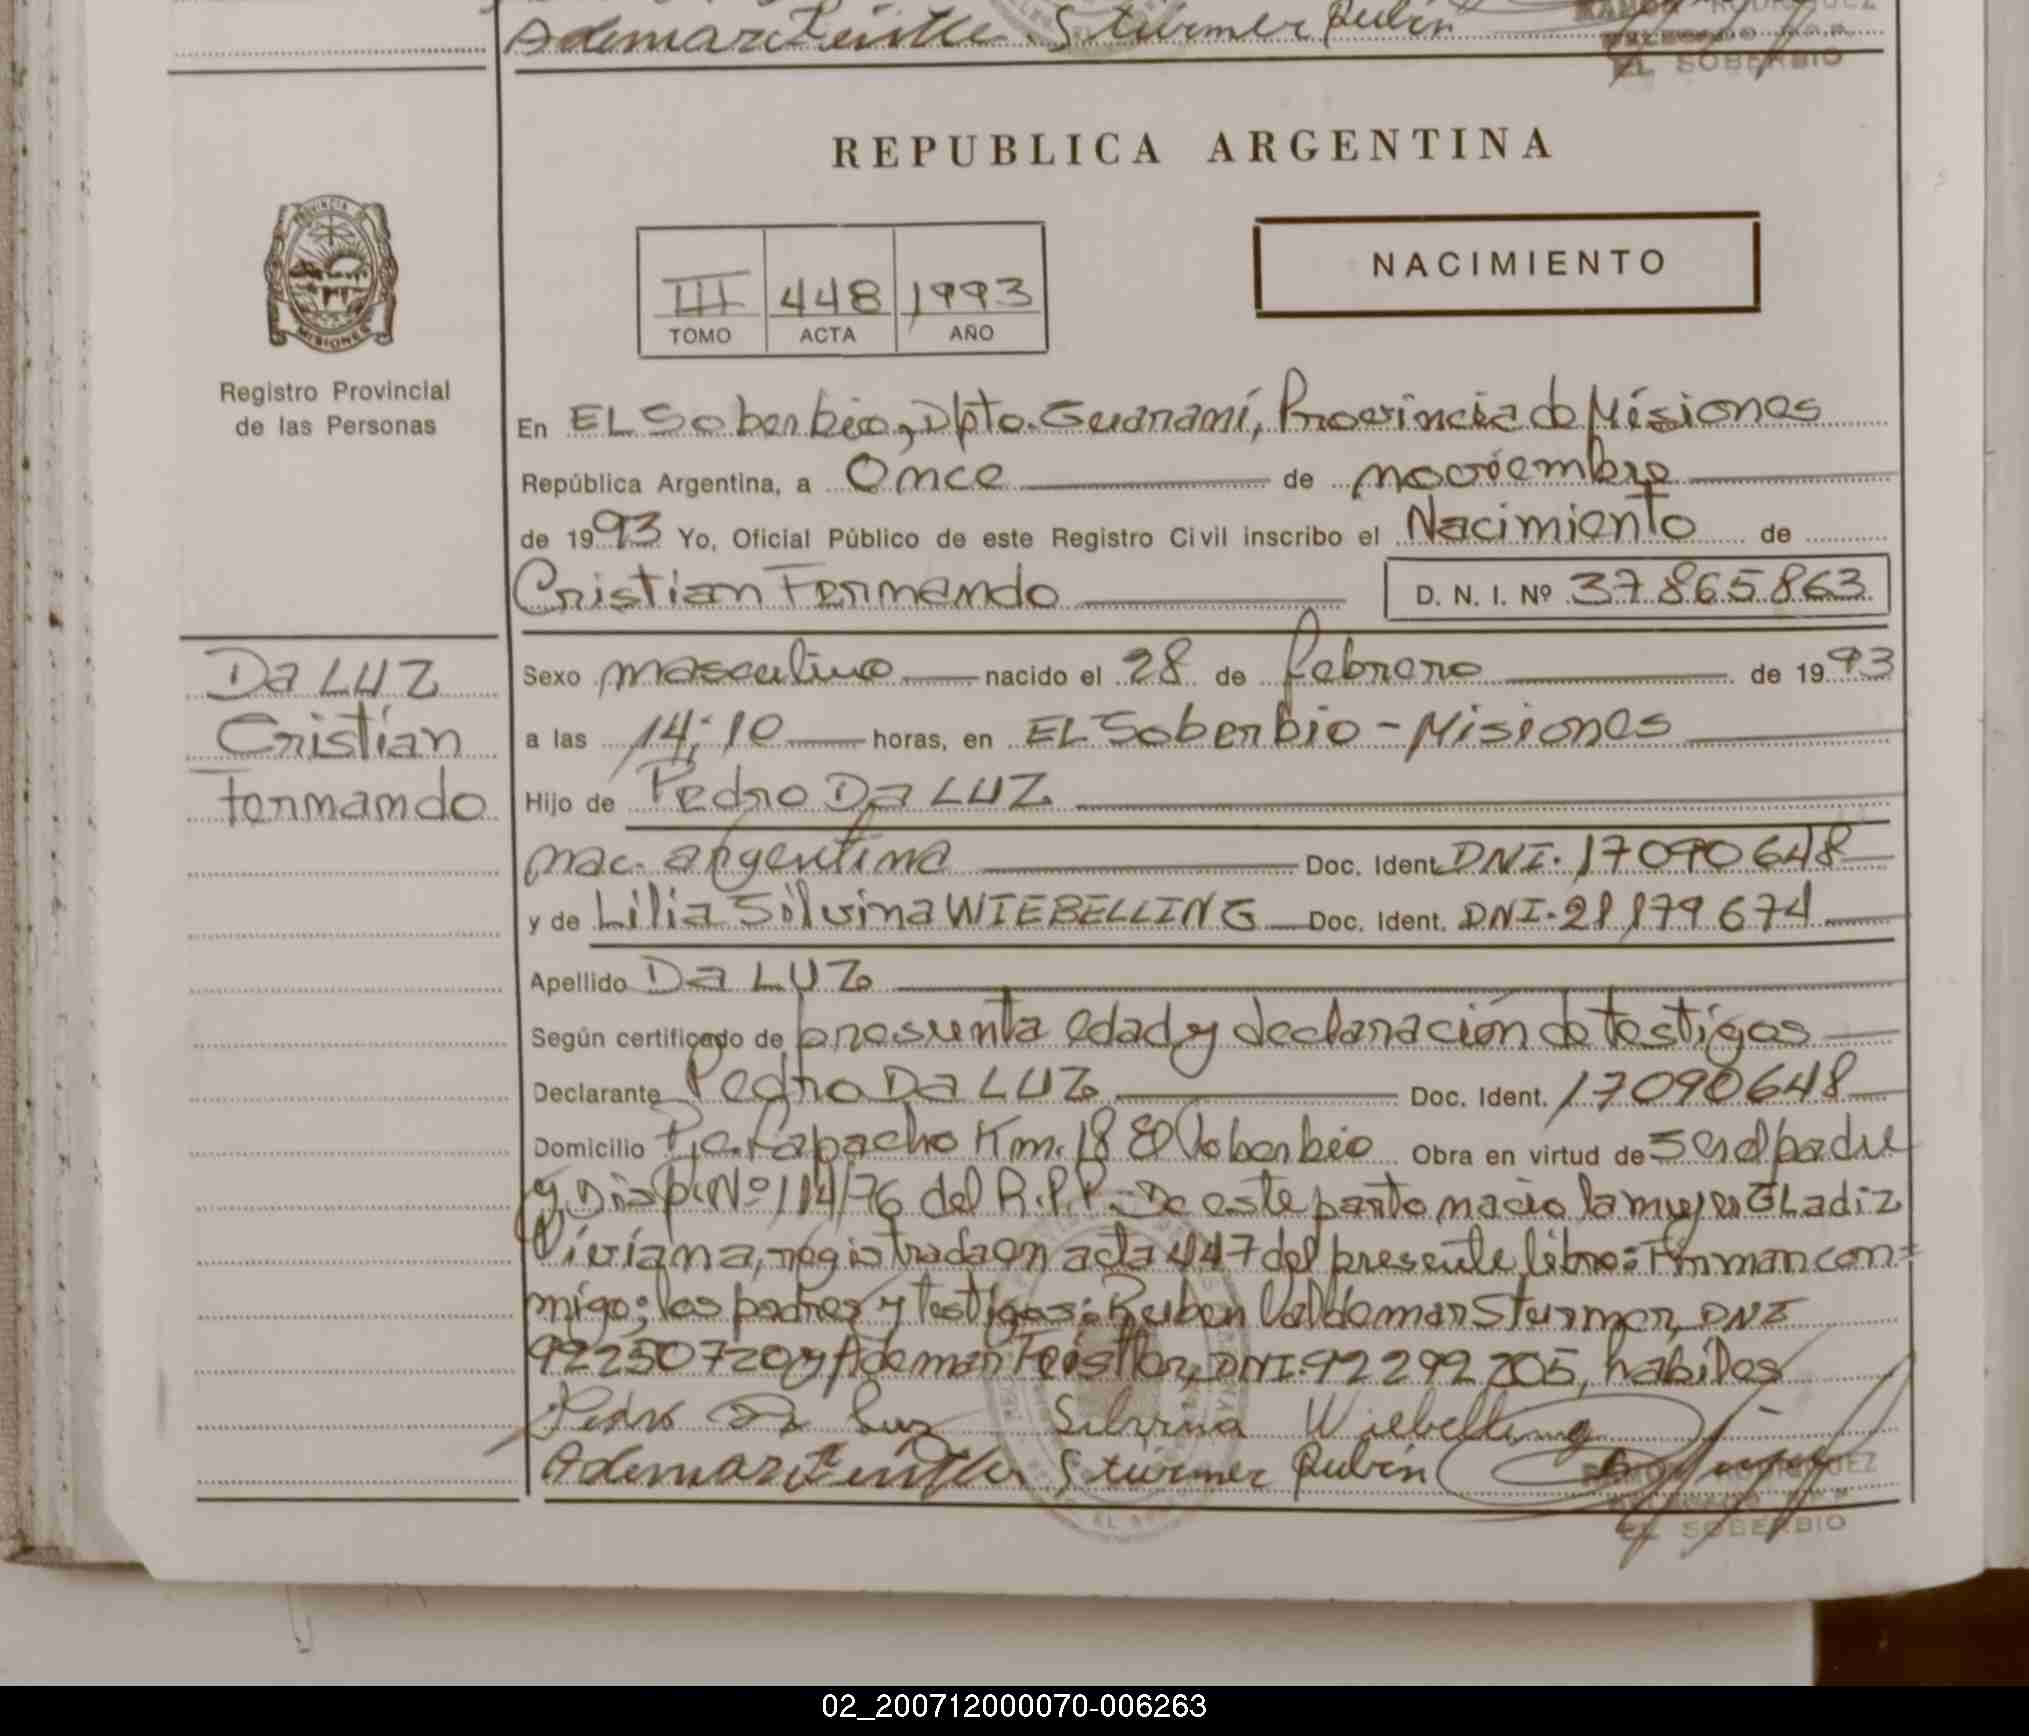 Ademar Feistler Stürmer Rubén
RAMON RODRIGUEZ
DELEGADO R.P.P.
EL SOBERBIO
REPUBLICA ARGENTINA
PROVINCIA DE
MISIONES
Registro Provincial
de las Personas
III 448 1993
TOMO ACTA AÑO
NACIMIENTO
En EL Soberbio, Dpto. Guaraní, Provincia de Misiones
República Argentina, a Once de noviembre
de 1993 Yo, Oficial Público de este Registro Civil inscribo el Nacimiento de
Cristian Fernando D. N. I. Nº 37865863
Da LUZ
Cristian
Fernando
Sexo masculino nacido el 28 de febrero de 1993
a las 14:10 horas, en EL Soberbio - Misiones
Hijo de Pedro Da LUZ
nac. argentina Doc. Ident. DNI. 17090648
y de Lilia Silvina WIEBELLING Doc. Ident. DNI. 28179674
Apellido Da LUZ
Según certificado de presunta edad y declaración de testigos
Declarante Pedro Da LUZ Doc. Ident. 17090648
Domicilio Pic. Lapacho Km. 18 El Soberbio Obra en virtud de ser el padre
y Disp. Nº 114/76 del R.P.P. De este parto nacio la mujer GLadiz
Viviana, registrada en acta 447 del presente libro: Firman con=
migo; los padres y testigos: Ruben Valdemar Sturmer, DNI
92250720 y Ademar Feistler, DNI. 92292205, habiles
Pedro Da Luz Silvina Wiebelling
Ademar Feistler Stürmer Rubén
RAMON RODRIGUEZ
DELEGADO R.P.P.
EL SOBERBIO
02_200712000070-006263